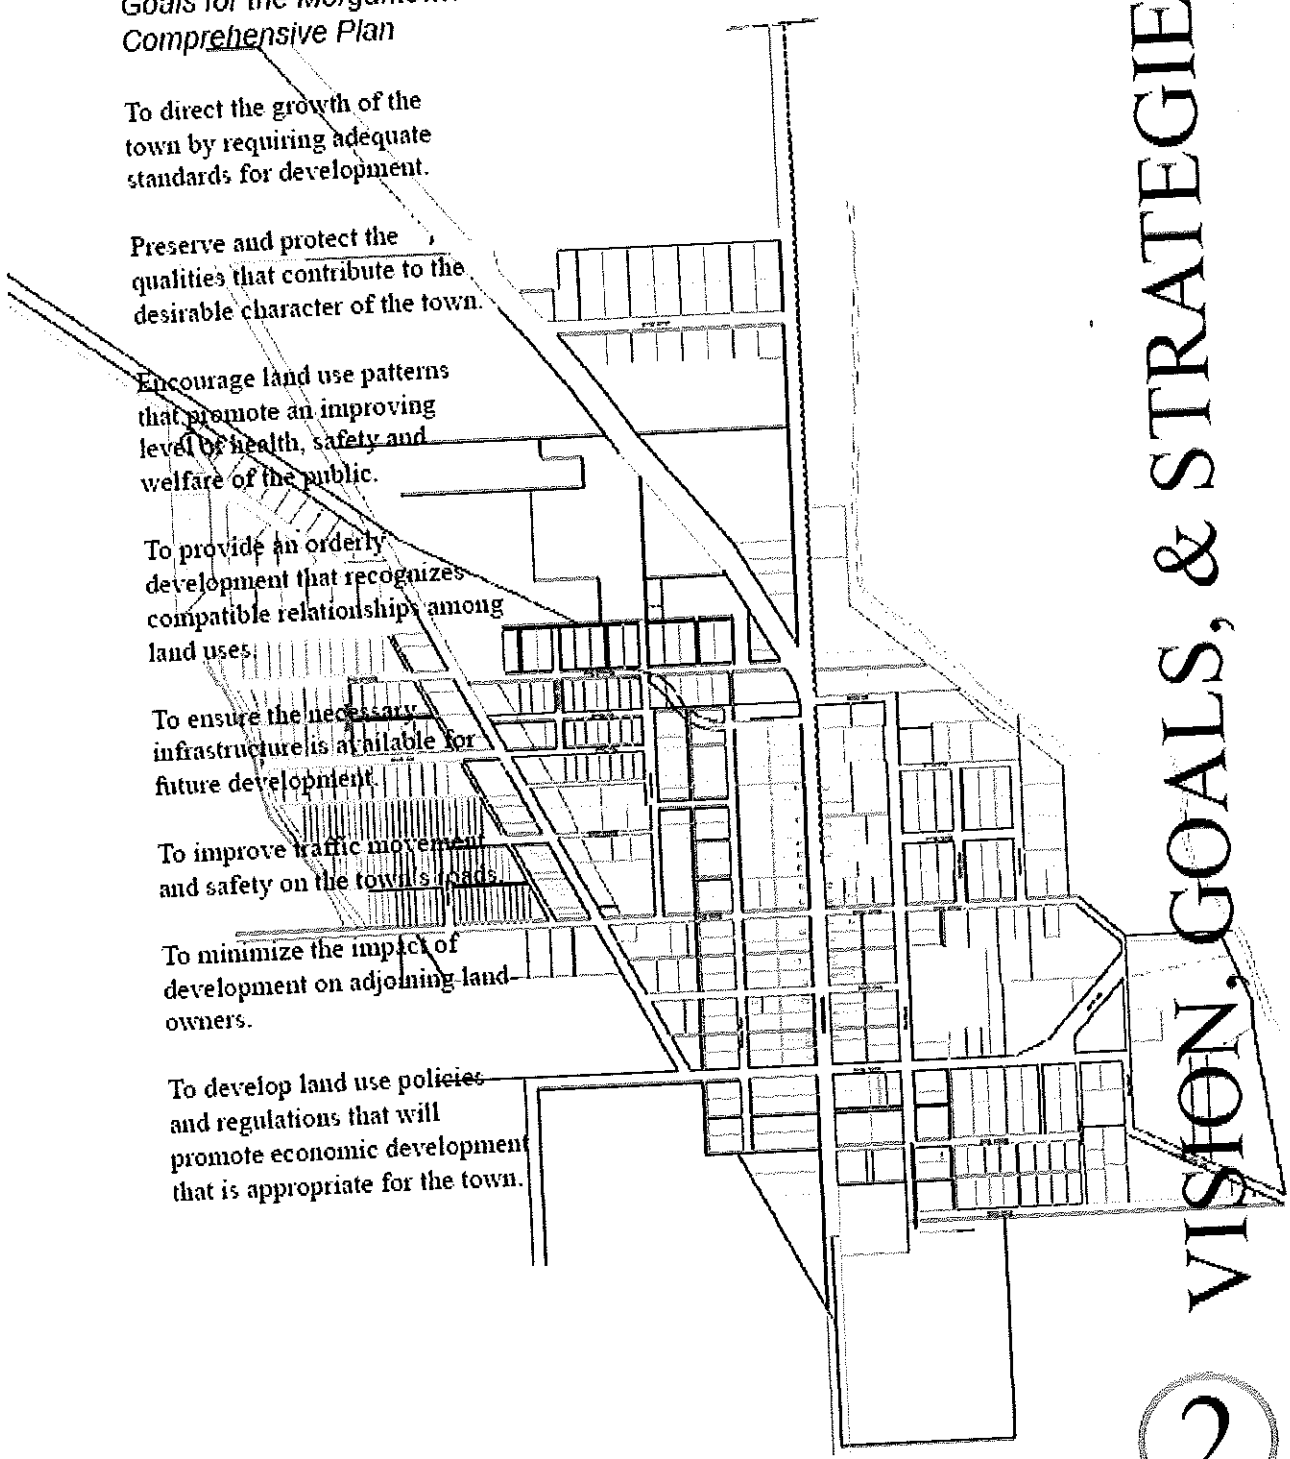 Goals for the
Comprehensive Plan
To direct the growth of the
town by requiring adequate
standards for development.
Preserve and protect the
qualities that contribute to the
desirable character of the town.
Encourage land use patterns
that promote an improving
level of health, safety and
welfare of the public.
To provide an orderly
development that recognizes
compatible relationships among
land uses.
To ensure the necessary
infrastructure is available for
future development.
To improve traffic movement
and safety on the town's roads.
To minimize the impact of
development on adjoining land-
owners.
To develop land use policies
and regulations that will
promote economic development
that is appropriate for the town.
2
VISION, GOALS, & STRATEGIE